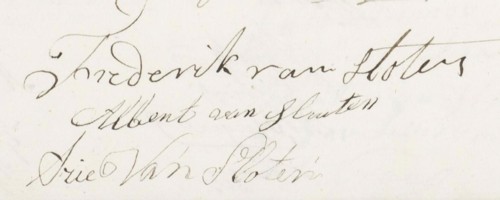 Frederik van Sloten
Albert van Sloten
Arie Van Sloten